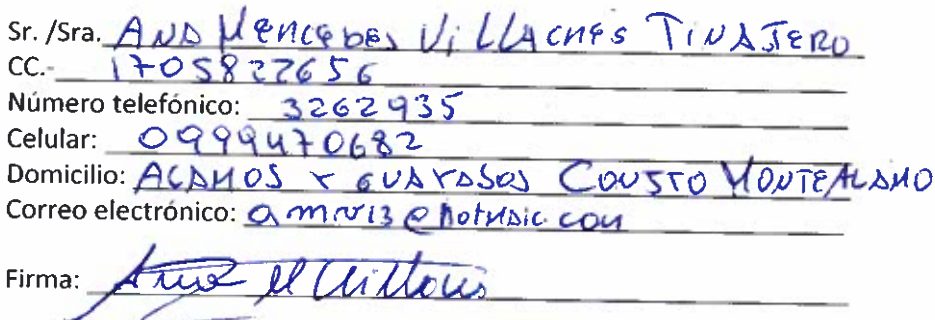 Sr. /Sra. ANA MERCEDES VILLACRES TINAJERO
CC.- 1705822656
Número telefónico: 3262935
Celular: 0999470682
Domicilio: ALAMOS Y GUAYABOS CONJTO MONTEALAMO
Correo electrónico: amrv13@hotmail.com
Firma: